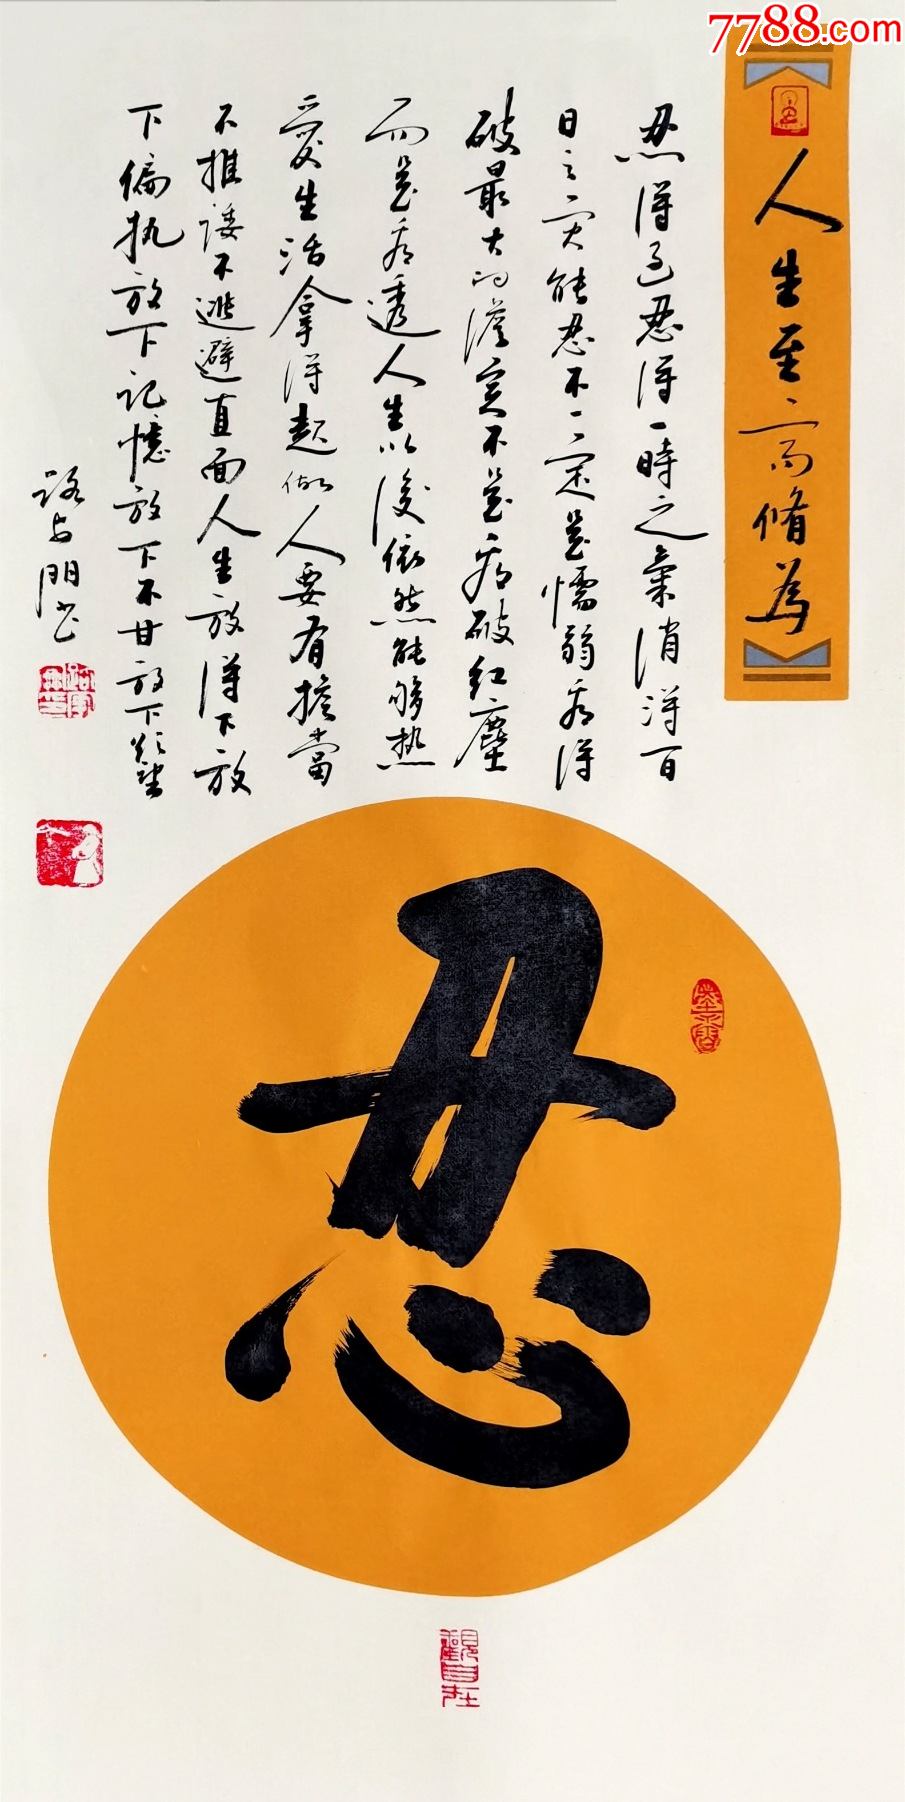 7788.com
人生至高脩為
忍得過忍得一時之氣消得百
日之灾能忍不一定是懦弱看得
破最大的澹定不是看破红塵
而是看透人生以後依然能够热
愛生活拿得起做人要有擔當
不推諉不逃避直面人生放得下放
下偏执放下记憶放下不甘放下
路
忍
觀自在